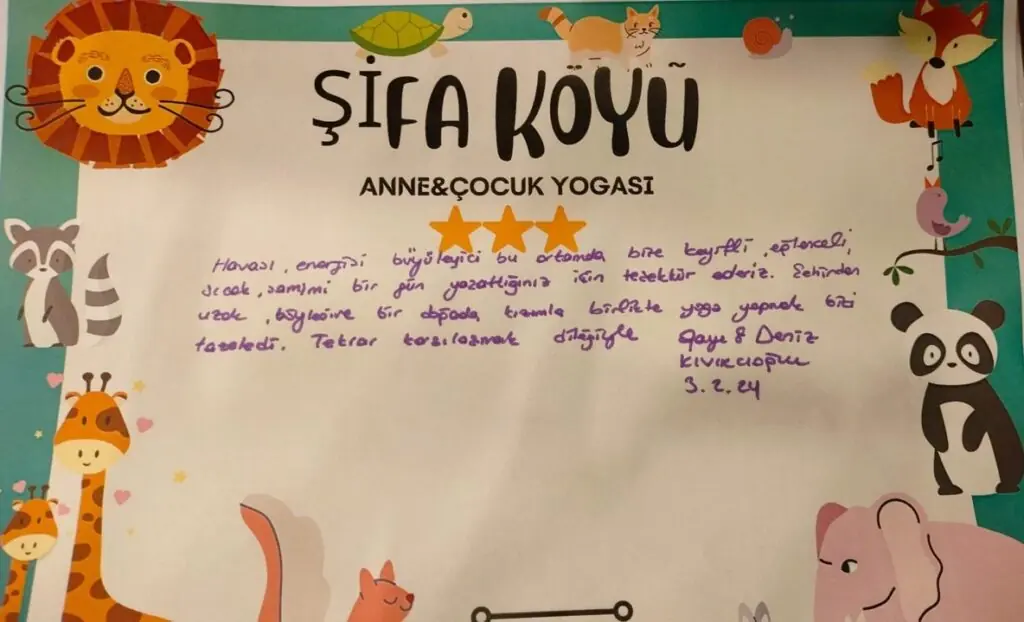 ŞİFA KÖYÜ
ANNE&ÇOCUK YOGASI
Havası, enerjisi büyüleyici bu ortamda bize keyifli, eğlenceli,
sıcak, samimi bir gün yaşattığınız için teşekkür ederiz. Şehirden
uzak, böylesine bir doğada kızımla birlikte yoga yapmak bizi
tazeledi. Tekrar karşılaşmak dileğiyle
& Deniz
KIVIKCIOĞLU
3.2.24